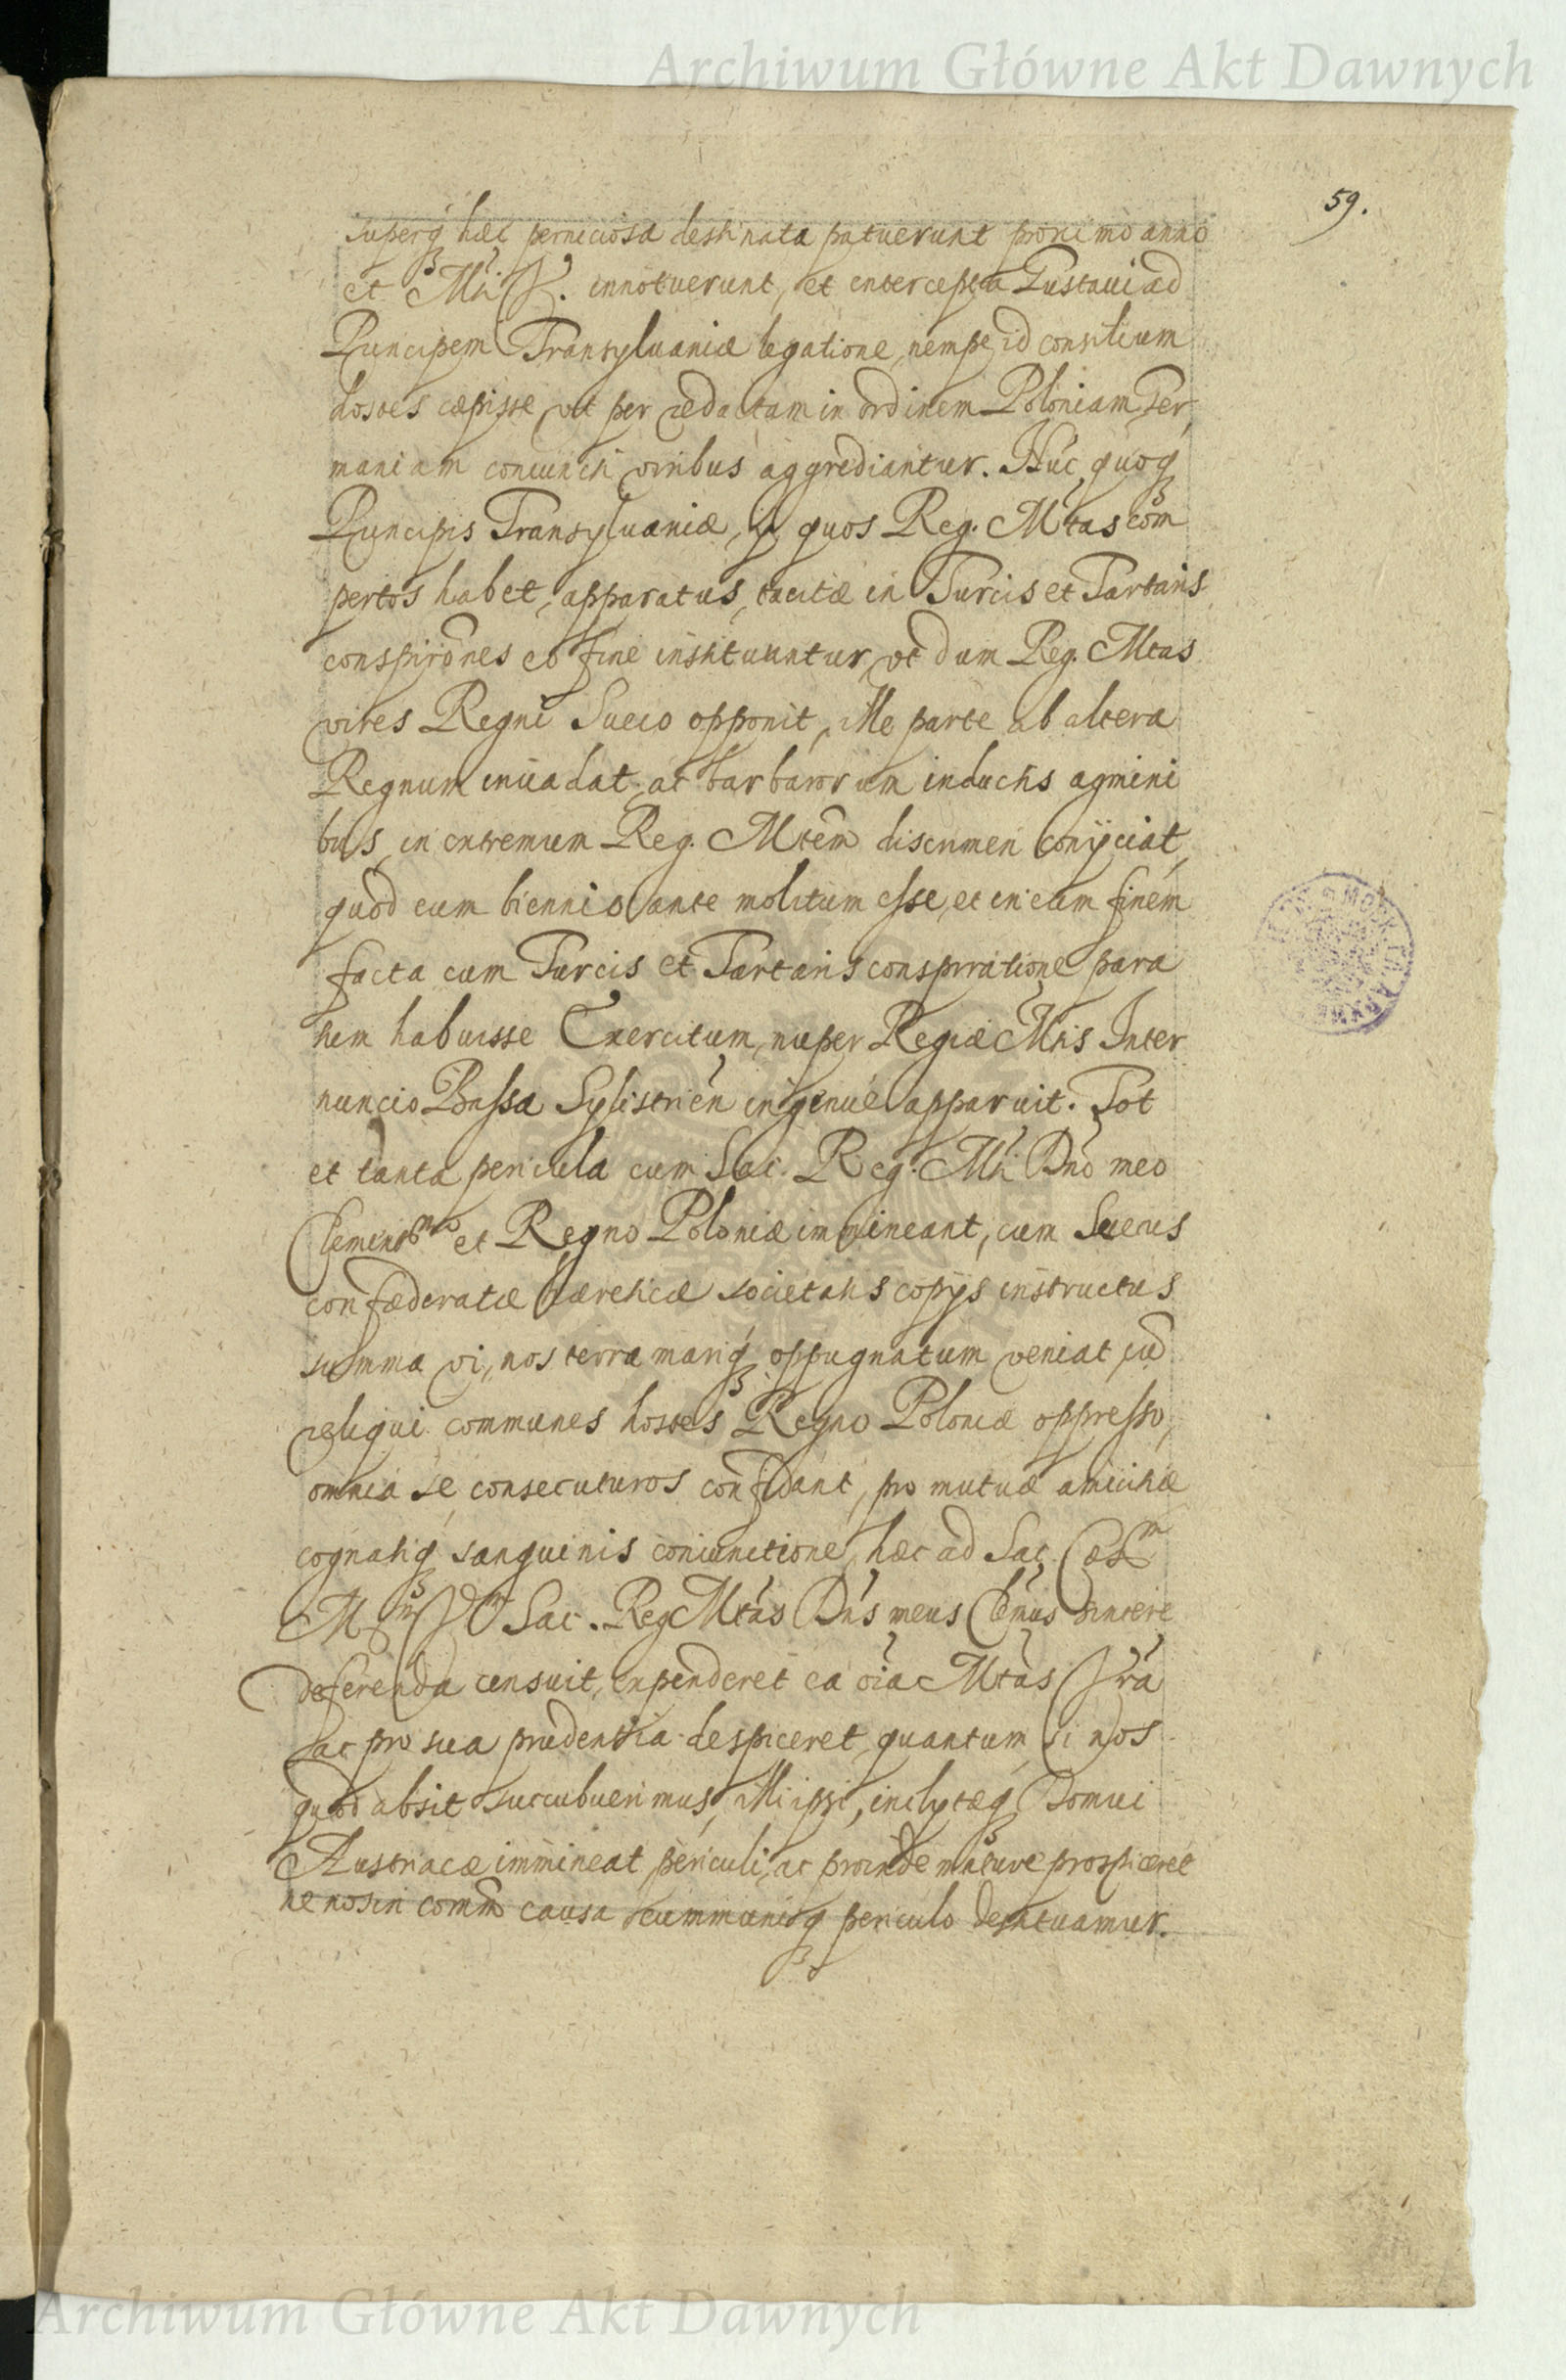 Archiwum Główne Akt Dawnych
59.
superq́ꝫ hæc perniciosa destinata patuerunt proximo anno
et Mti V. innotuerunt, et intercepta Gustaui ad
Principem Transyluaniæ legatione, nempe id consilium
hostes cæpisse, vt per redactam in ordinem Poloniam Ger
maniam coniunctis viribus aggrediantur. Huc quoq́ꝫ
Principis Transyluaniæ, ij quos Reg. Mtas com
pertos habet, apparatus, tacitæ in Turcis et Tartaris
conspirões eo fine instituuntur, vt dum Reg. Mtas
vires Regni Sueco opponit, ille parte ab altera
Regnum inuadat, ac barbarorum inductis agmini
bus, in extremum Reg. Mtem discrimen conÿciat,
quod eum biennio ante molitum esse, et in eum finem
facta cum Turcis et Tartaris conspiratione para
tum habuisse Exercitum, nuper Regiæ Mtis Inter
nuncio Bassa Sylistrien ingenue apparuit. Tot
et tanta pericula cum Sac. Reg. Mti Dno meo
Clementmo et Regno Poloniæ immineant, cum Suecus
confæderatæ hæreticæ societatis copÿs instructus
summa vi, nos terra mariq́ꝫ oppugnatum veniat, cũ
reliqui communes hostes Regno Poloniæ oppresso,
omnia se consecuturos confidant, pro mutuæ amicitiæ
cognatiq́ꝫ sanguinis coniunctione, hæc ad Sac. Cæs m
Sac. Reg Mtas Dns meus Clemus sincere
deferenda censuit, expenderet ea oia Mtas Vra
ac pro sua prudentia despiceret, quantum si nos
quod absit succubuerimus, illi ipsi, inclytæq́ꝫ Domui
Austriacæ immineat periculi, ac proinde mature prospiceret
ne nos in commi causa cummuniq́ꝫ periculo destituamur.
Archiwum Główne Akt Dawnych